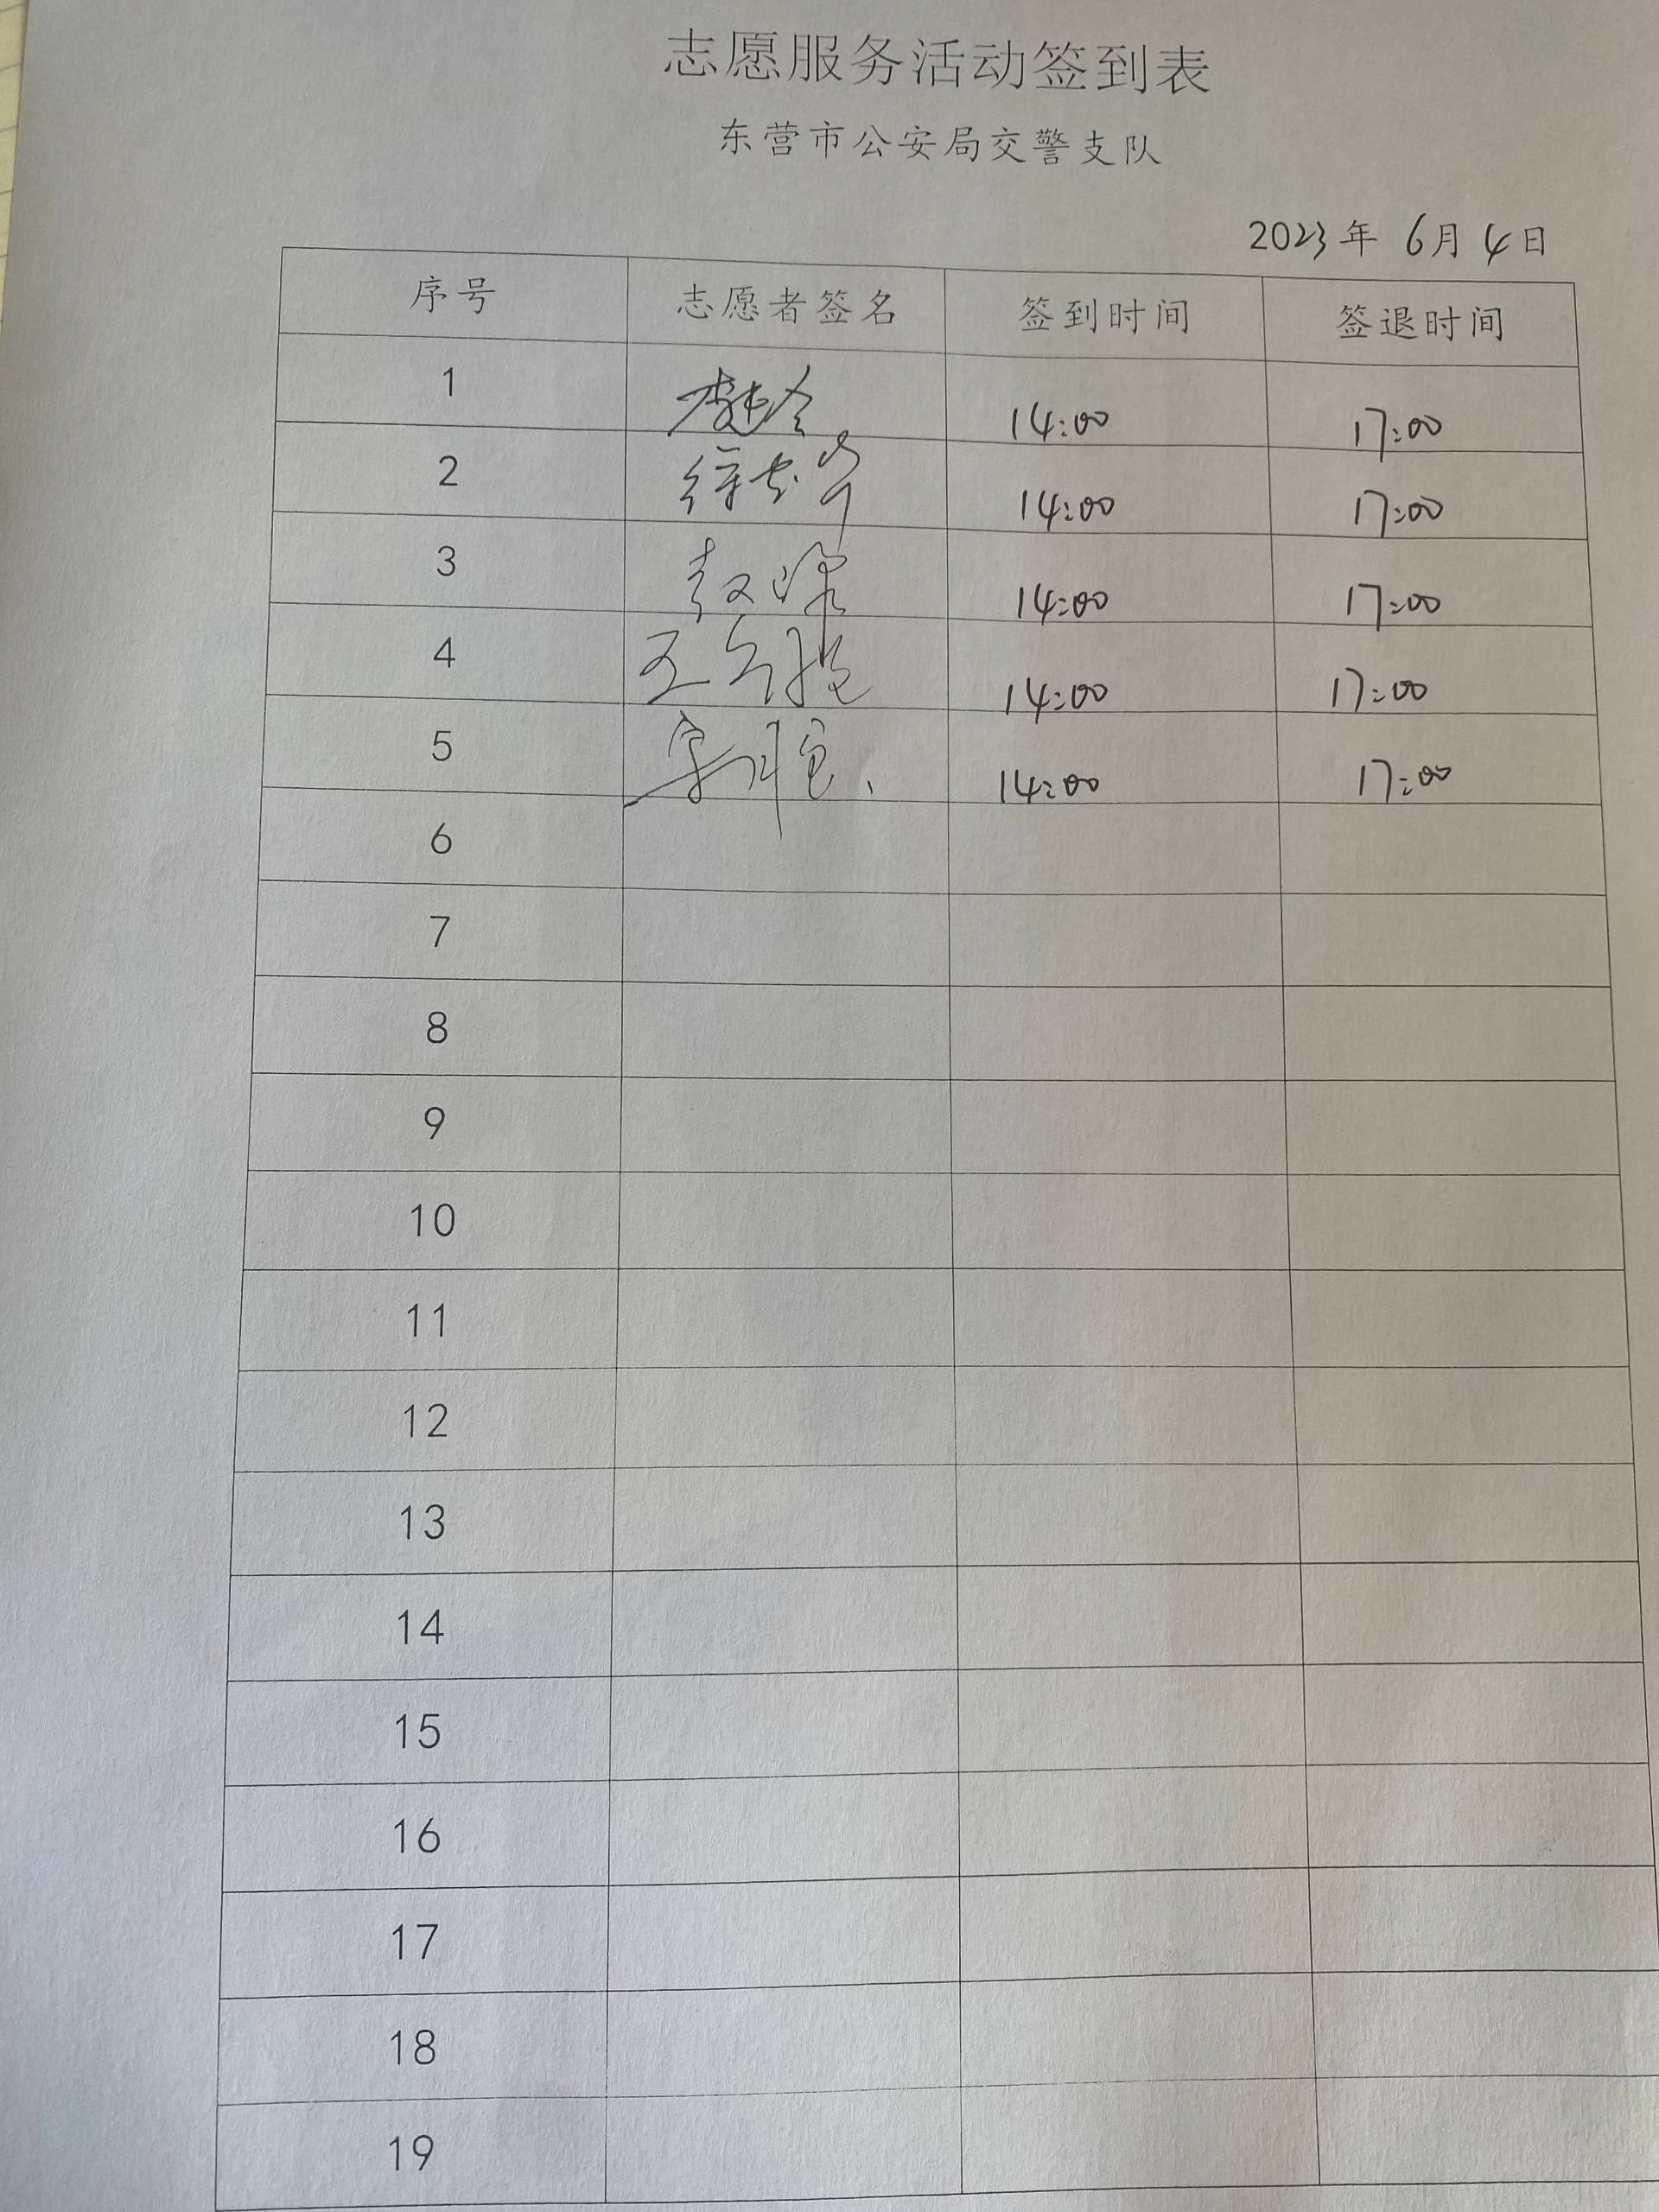 志愿服务活动签到表
东营市公安局交警支队
2023年 6月 4日
序号 志愿者签名 签到时间 签退时间
1 14:00 17:00
2 14:00 17:00
3 14:00 17:00
4 14:00 17:00
5 14:00 17:00
6
7
8
9
10
11
12
13
14
15
16
17
18
19